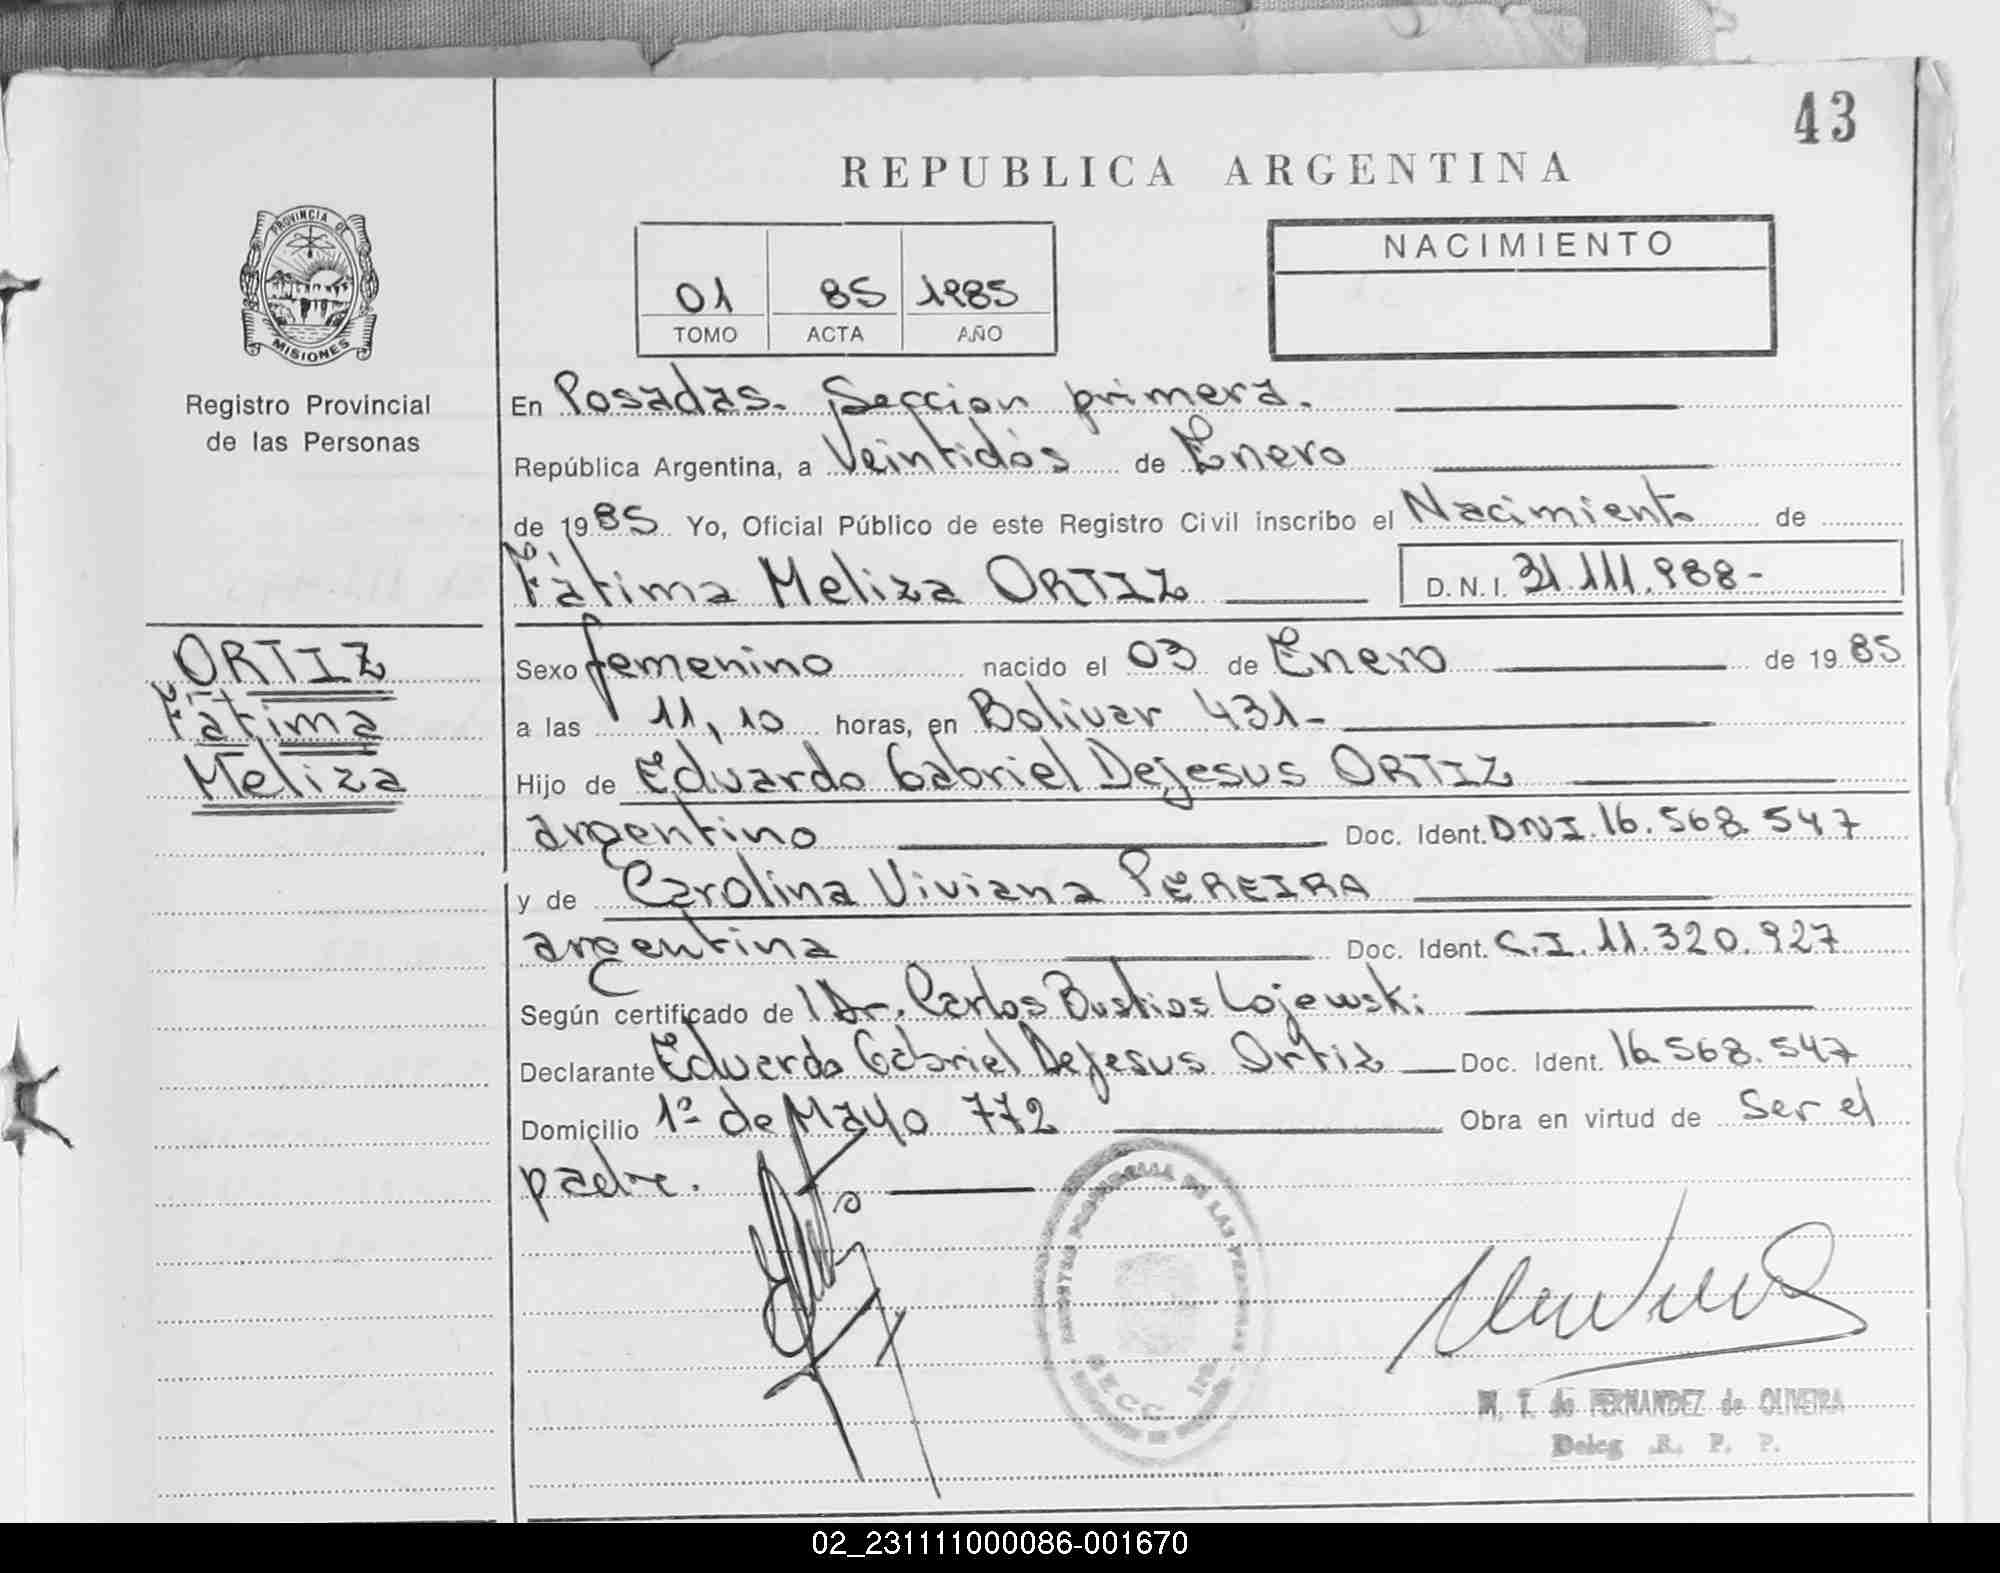 43
REPUBLICA ARGENTINA
PROVINCIA DE
MISIONES
Registro Provincial
de las Personas
01 85 1985
TOMO ACTA AÑO
NACIMIENTO
En Posadas. Seccion primera.
República Argentina, a Veintidós de Enero
de 1985 Yo, Oficial Público de este Registro Civil inscribo el Nacimiento de
Fátima Meliza ORTIZ D.N.I. 31.111.988-
ORTIZ
Fátima
Meliza
Sexo femenino nacido el 03 de Enero de 1985
a las 11,10 horas, en Bolivar 431-
Hijo de Eduardo Gabriel Dejesus ORTIZ
argentino Doc. Ident. DNI. 16.568.547
y de Carolina Viviana PEREIRA
argentina Doc. Ident. C.I. 11.320.927
Según certificado de Dr. Carlos Bustios Lojewski
Declarante Eduardo Gabriel Dejesus Ortiz Doc. Ident. 16.568.547
Domicilio 1º de Mayo 772 Obra en virtud de Ser el
padre.
M. T. de FERNANDEZ de OLIVEIRA
Deleg. R. P. P.
02_231111000086-001670